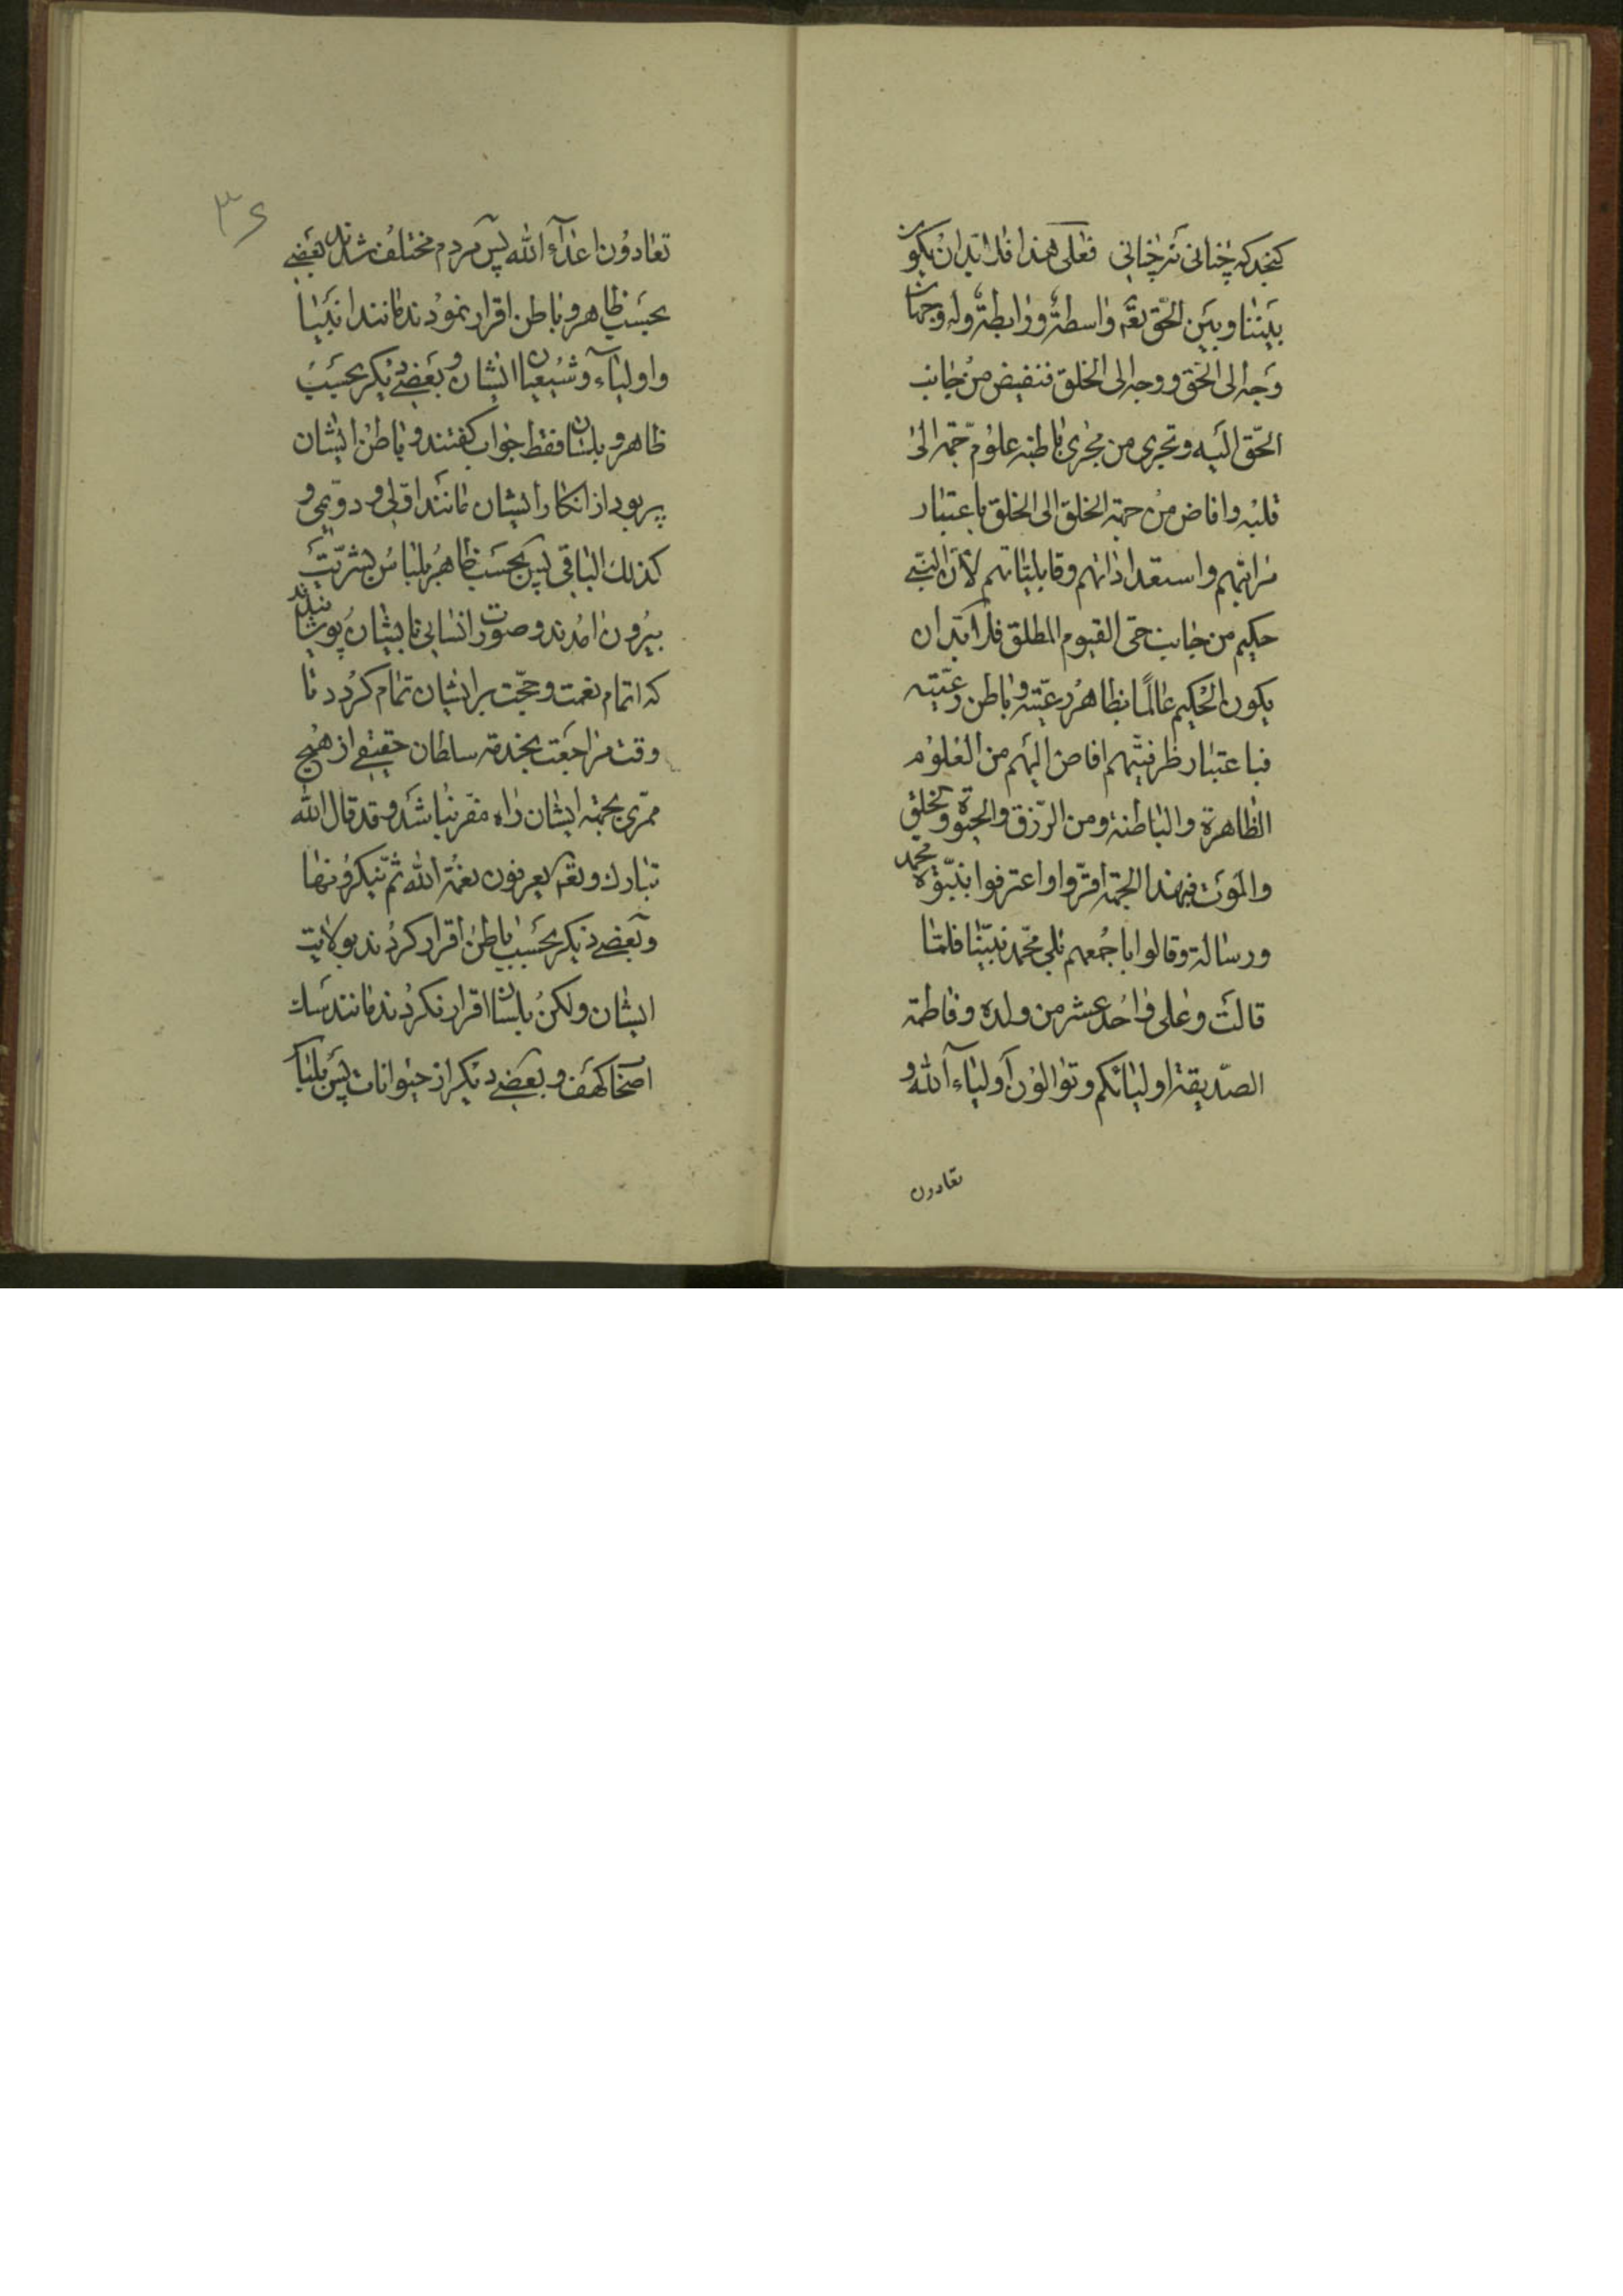 گنجد که چنانی نه چنانی فعلی هذا فلا بد ان یکون
بیننا و بین الحق تعه واسطة و رابطة و له وجهان
وجه الی الحق و وجه الی الخلق فتفیض من جانب
الحق الیه و تجری من مجری باطنه علوم جمة الی
قلبه و افاض من جهة الخلق الی الخلق باعتبار
مراتبهم و استعداداتهم و قابلیاتهم لان النبی
حکیم من جانب حی القیوم المطلق فلا بد ان
یکون الحکیم عالما بظاهر رعیته و باطن رعیته
فباعتبار ظرفیتهم افاض الیهم من العلوم
الظاهرة و الباطنة و من الرزق و الحیوة و الخلق
و الموت فبهذا الجهة اقروا و اعترفوا بنبوة محمد
و رسالته و قالوا باجمعهم بلی محمد نبینا فلما
قالت و علی و احد عشر من ولده و فاطمة
الصدیقة اولیائکم و توالون اولیاء الله و
تعادون
۳۶
تعادون اعداء الله پس مردم مختلف شدند بعضی
بحسب ظاهر و باطن اقرار نمودند مانند انبیا
و اولیاء و شیعیان ایشان و بعضی دیگر بحسب
ظاهر و بلسان فقط جواب گفتند و باطن ایشان
پر بود از انکار ایشان مانند اولی و دویمی و
کذلک الباقی پس بحسب ظاهر بلباس بشریت
بیرون امدند و صورت انسانی بایشان پوشانیدند
که اتمام نعمت و حجت بر ایشان تمام کردد تا
وقت مراجعت بخدمت سلطان حقیقی از هیچ
ممری بجهة ایشان راه مفر نباشد و قد قال الله
تبارک و تعه یعرفون نعمة الله ثم ینکرونها
و بعضی دیگر بحسب باطن اقرار کردند بولایت
ایشان ولکن بلسان اقرار نکردند مانند سک
اصحاب کهف و بعضی دیگر از حیوانات پس بلباس